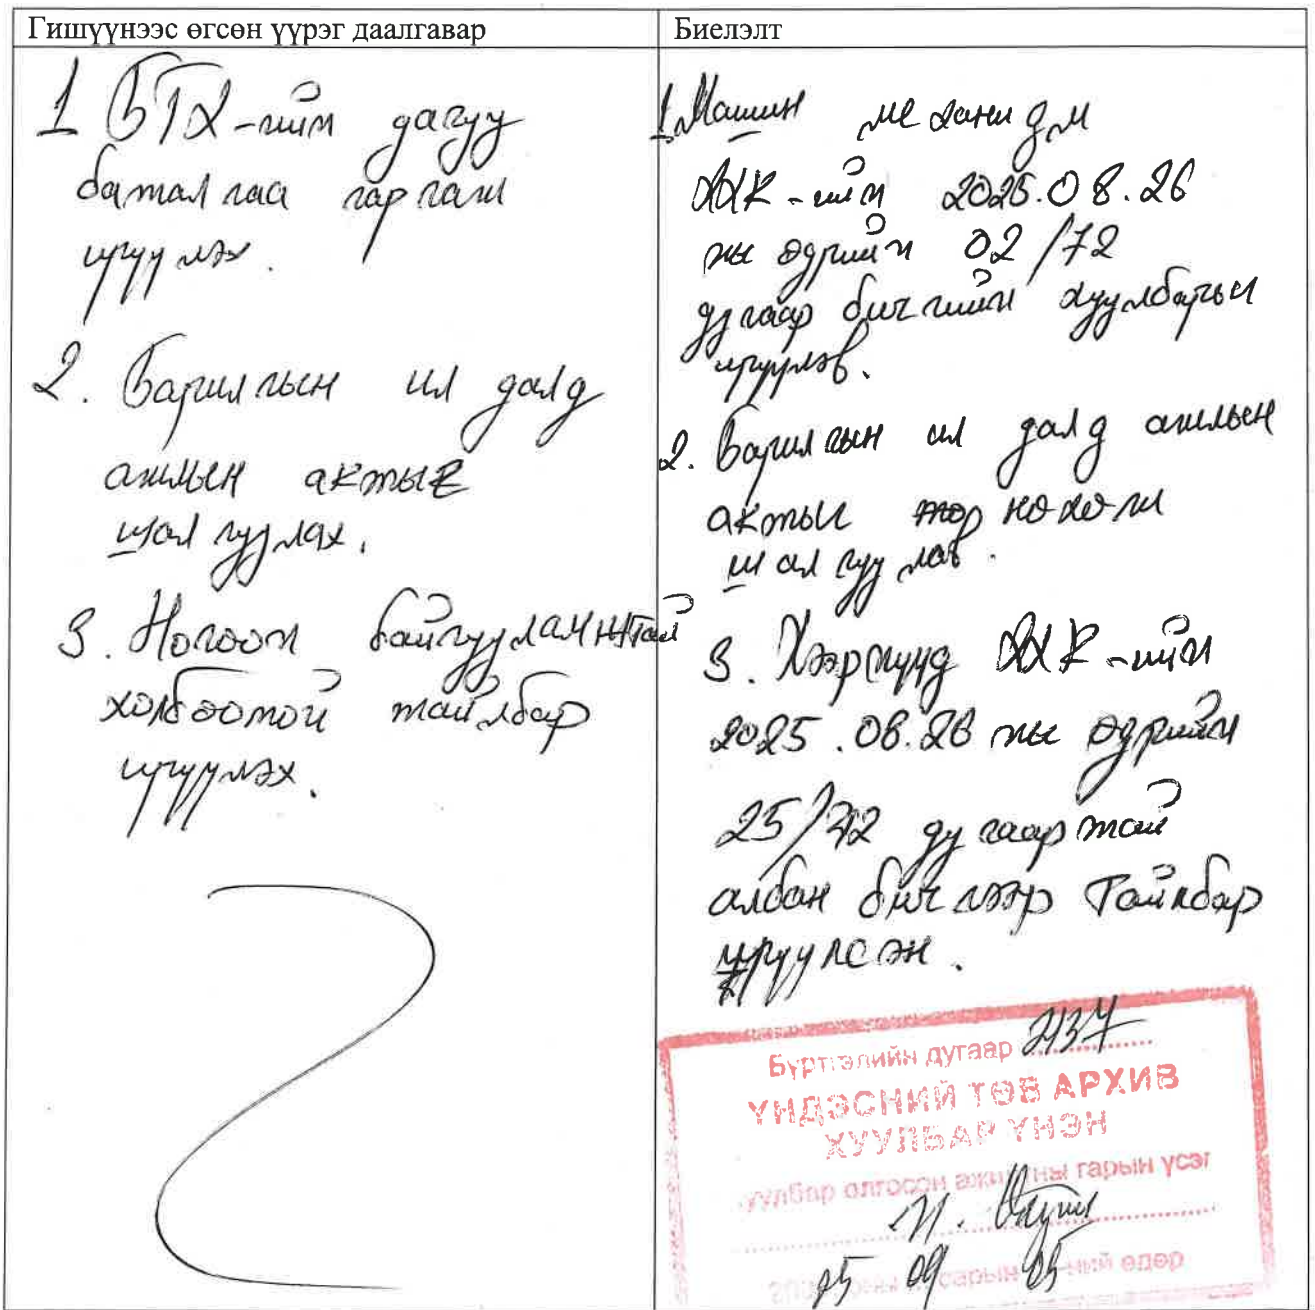 Гишүүнээс өгсөн үүрэг даалгавар
1 БТХ-ийн дагуу
баталгаа гаргаж
ирүүлэх.
2. Барилгын ил далд
ажлын актыг
шалгуулах.
3. Ногоон байгууламжтай
холбоотой тайлбар
ирүүлэх.
Биелэлт
1. Машин механизм
ХХК-ийн 2025.08.26
ны өдрийн 02/72
дугаар бичгийн хуулбарыг
ирүүлэв.
2. Барилгын ил далд ажлын
актыг нөхөж
шалгуулав.
3. Хээрмүүд ХХК-ийн
2025.08.26 ны өдрийн
25/ дугаартай
албан бичгээр тайлбар
ирүүлсэн.
Бүртгэлийн дугаар 2137
ҮНДЭСНИЙ ТӨВ АРХИВ
ХУУЛБАР ҮНЭН
хуулбар олгосон ажилтны гарын үсэг
25 09 05
сарын -ний өдөр